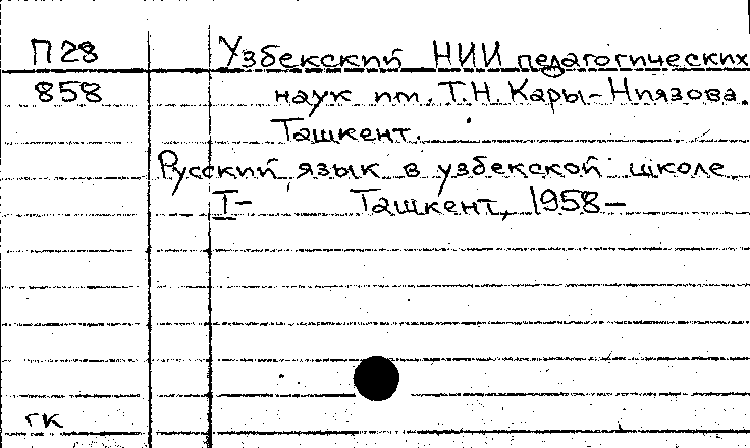 П28 Узбекский НИИ педагогических
858 наук им. Т.Н. Кары-Ниязова.
Ташкент.
Русский язык в узбекской школе
I- Ташкент, 1958-
гк